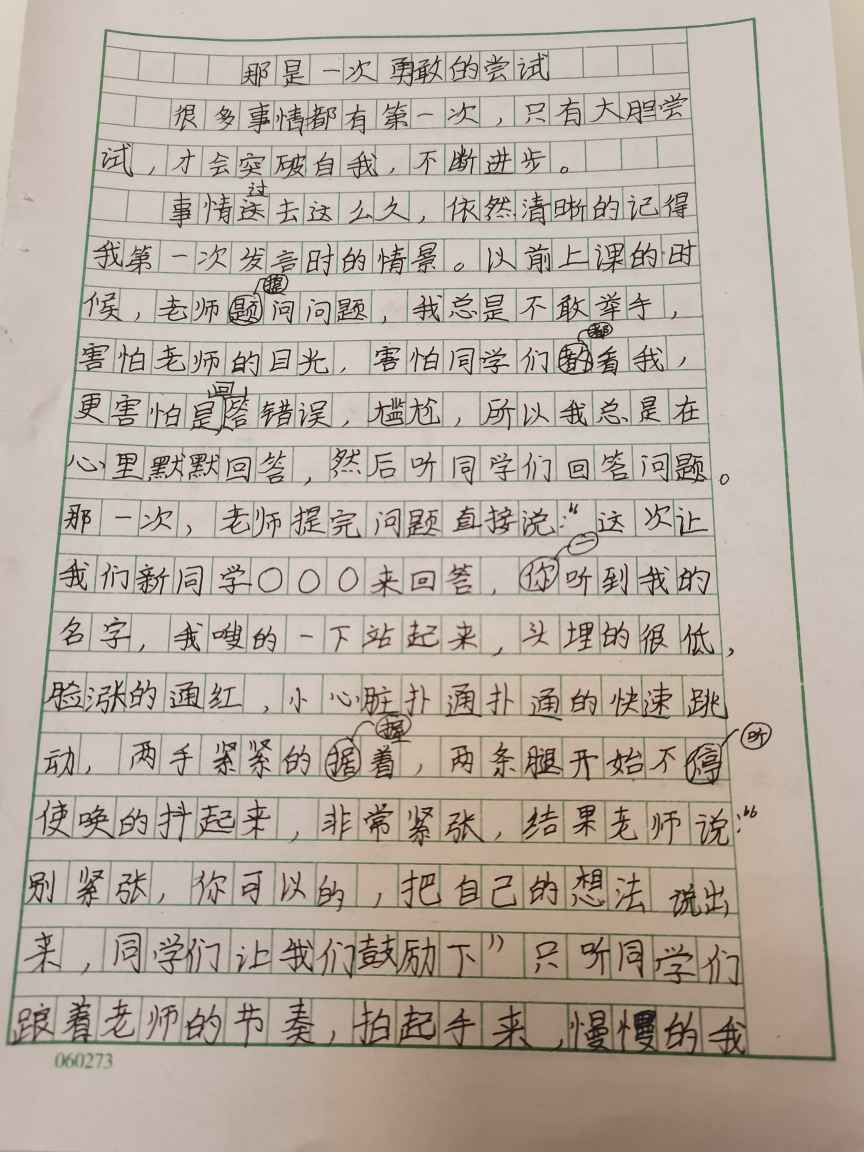 那是一次勇敢的尝试
很多事情都有第一次，只有大胆尝
试，才会突破自我，不断进步。
过
事情送去这么久，依然清晰的记得
我第一次发言时的情景。以前上课的时
提
候，老师题问问题，我总是不敢举手，
都
害怕老师的目光，害怕同学们的看我，
回
更害怕是答错误，尴尬，所以我总是在
心里默默回答，然后听同学们回答问题。
那一次，老师提完问题直接说：“这次让
我们新同学〇〇〇来回答，你听到我的
名字，我嗖的一下站起来，头埋的很低，
脸涨的通红，小心脏扑通扑通的快速跳
握 听
动，两手紧紧的据着，两条腿开始不停
使唤的抖起来，非常紧张，结果老师说：“
别紧张，你可以的，把自己的想法说出
来，同学们让我们鼓励下”只听同学们
踉着老师的节奏，拍起手来，慢慢的我
060273